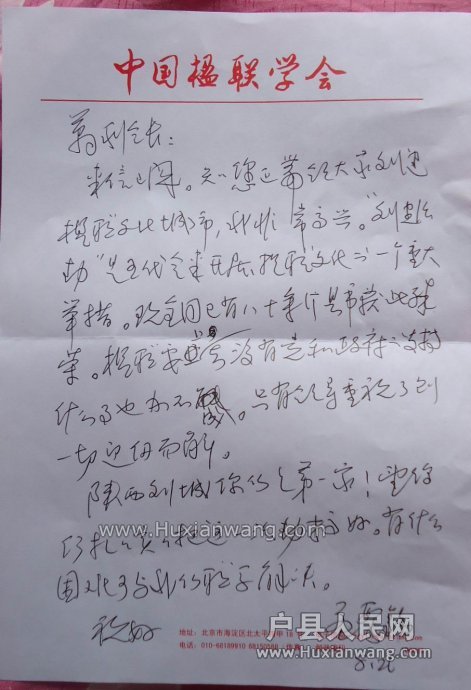 中国楹联学会
会长:
来信已阅。知您正带领大家创建
楹联文化城市,我非常高兴。"创建活
动"是五代会来开展楹联文化的一个重大
举措。现全国已有八十来个县市获此殊
荣。楹联要 没有党和政府的支持
什么事也办不成。只有领导重视了则
一切迎刃而解。
陕西创城你们是第一家!望你
们扎扎实实把这一活动搞好。有什么
困难可与我们联系解决。
祝好
地址:北京市海淀区北太平
电话:010-68189910 68150588
8.26
www.Huxianwang.com
户县人民网
www.Huxianwang.com